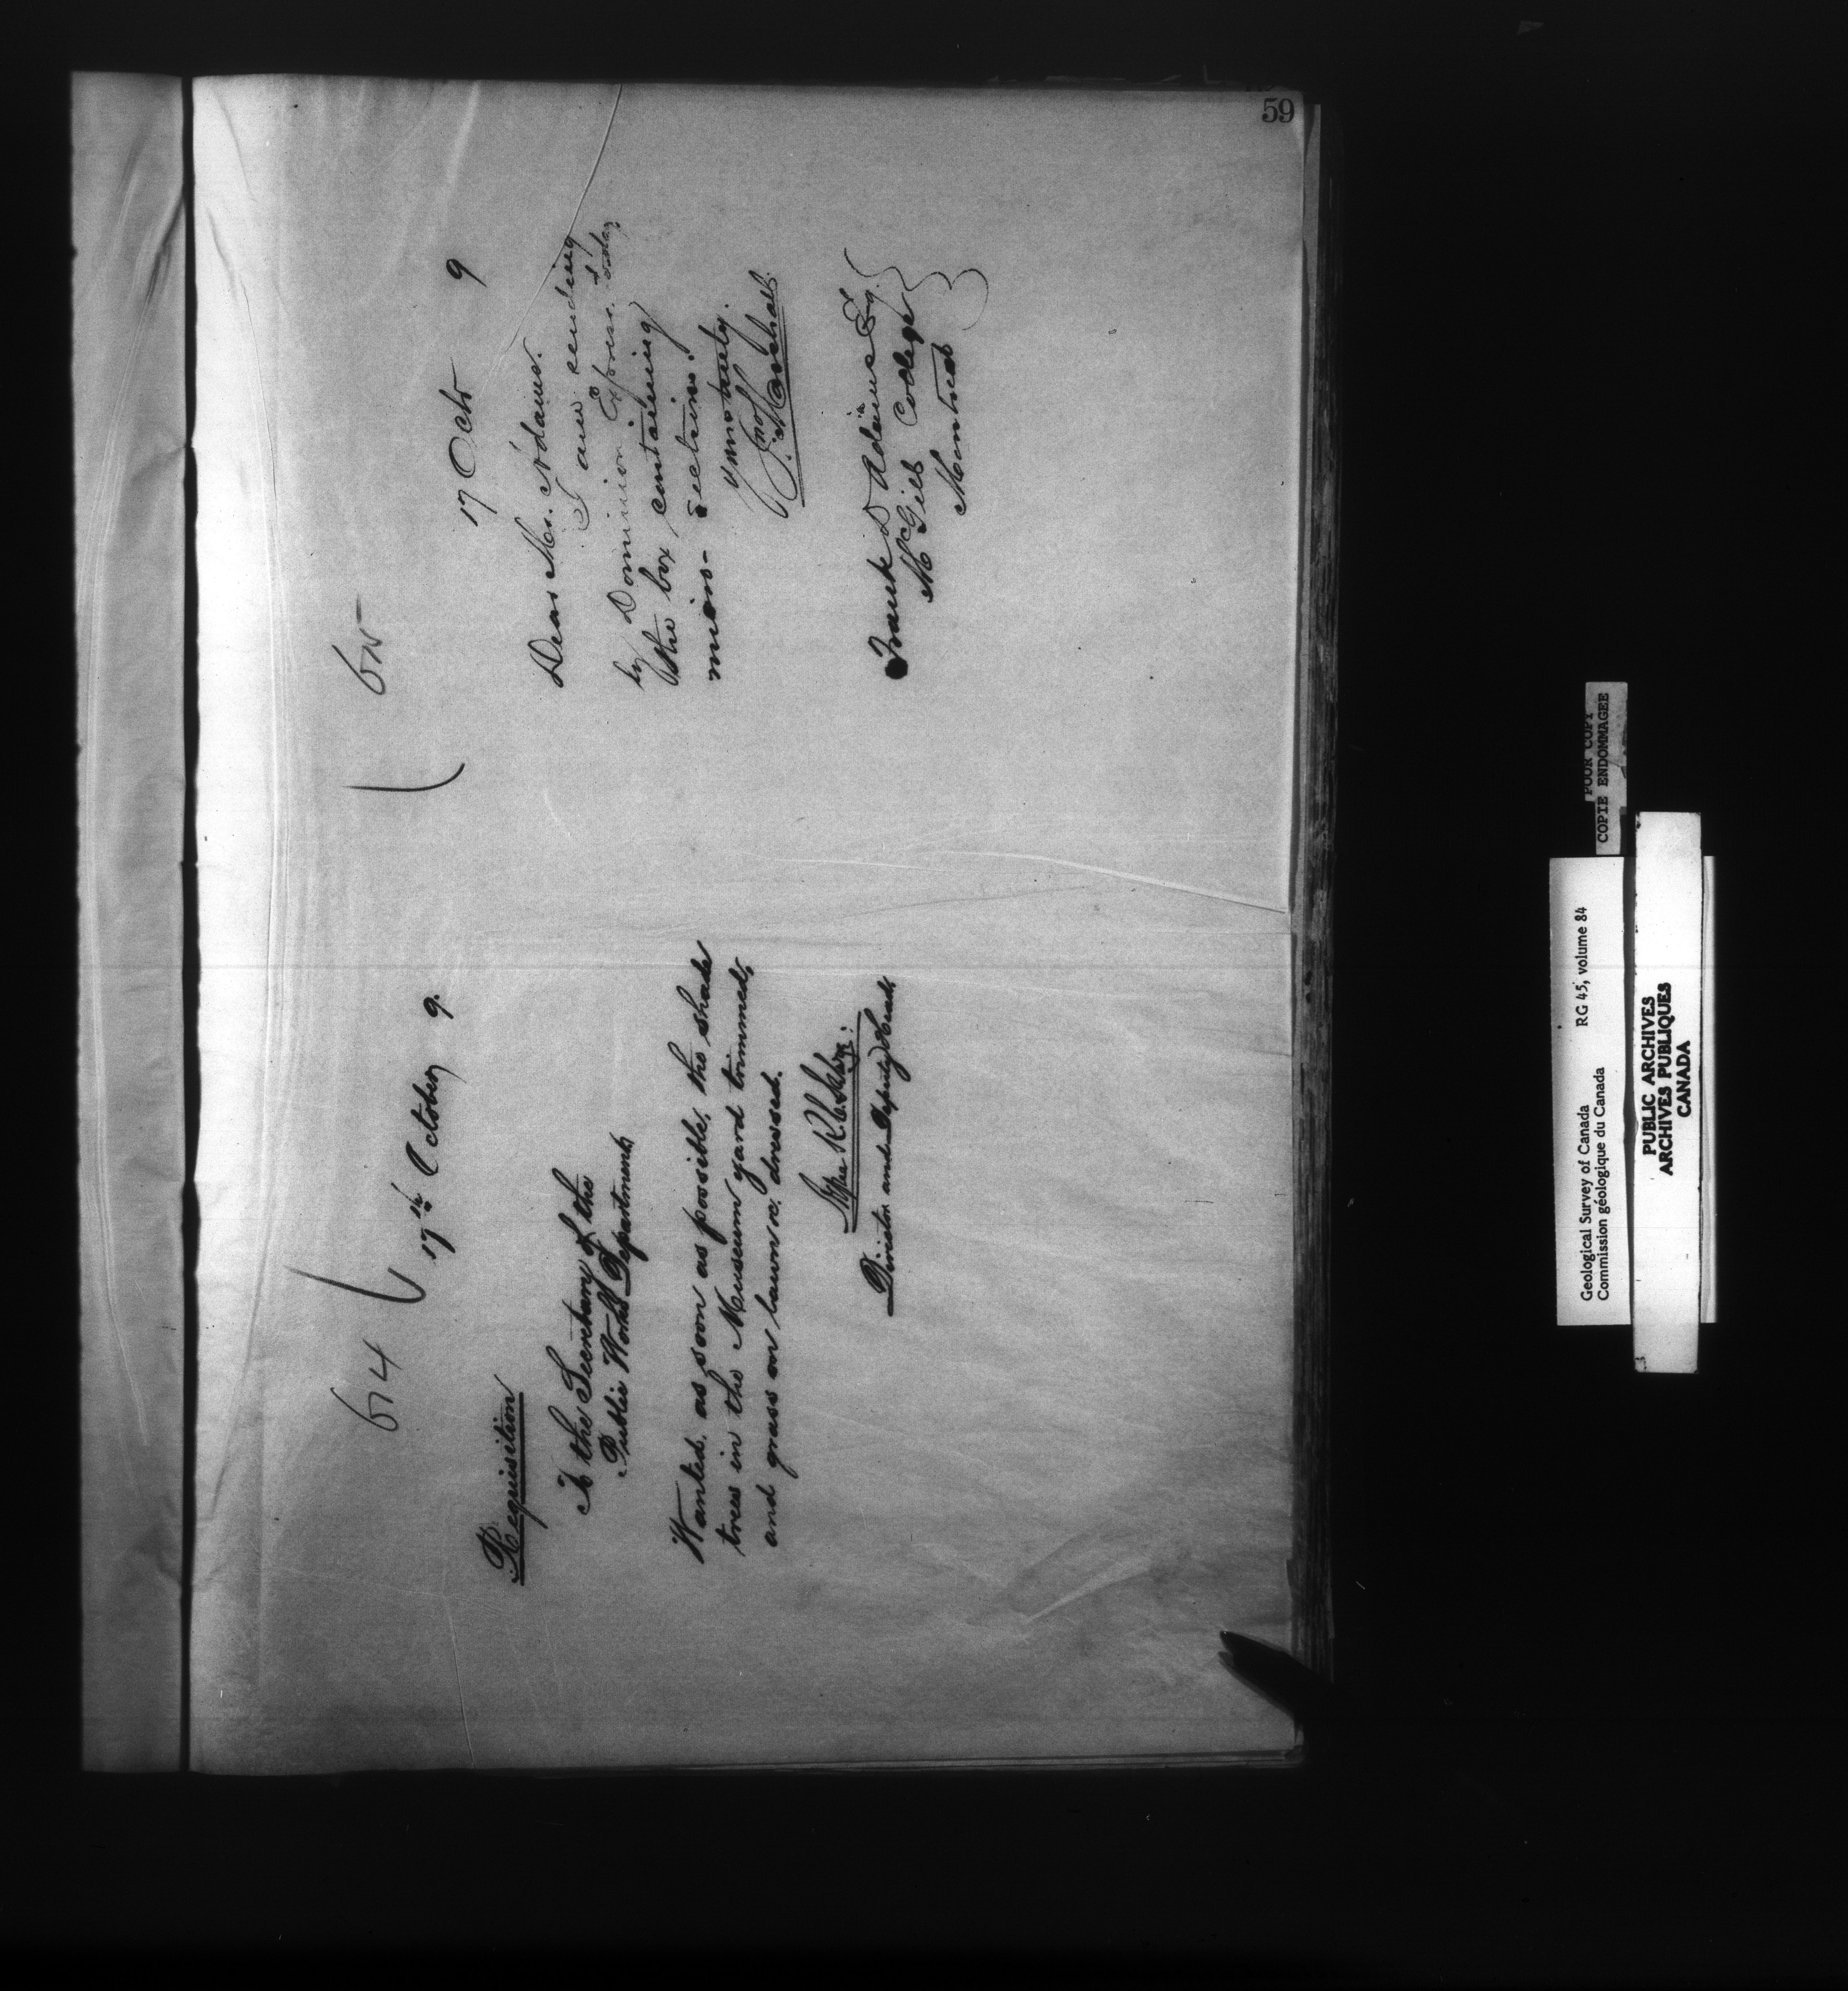 59
614
17th October 9.
Requisition
To the Secretary of the
Public Works Department,
Wanted, as soon as possible, the shade
trees in the Museum yard trimmed,
and grass on lawn &c. dressed.
Director and Deputy Head,
615
17 Octr 9
Dear Mr. Adams.
I am sending
by Dominion Express today
the box containing
micro-sections.
Yours truly.
Jno Marshall
Frank D Adams Esq.
McGill College
Montreal
POOR COPY
COPIE ENDOMMAGEE
Geological Survey of Canada RG 45, volume 84
Commission géologique du Canada
PUBLIC ARCHIVES
ARCHIVES PUBLIQUES
CANADA